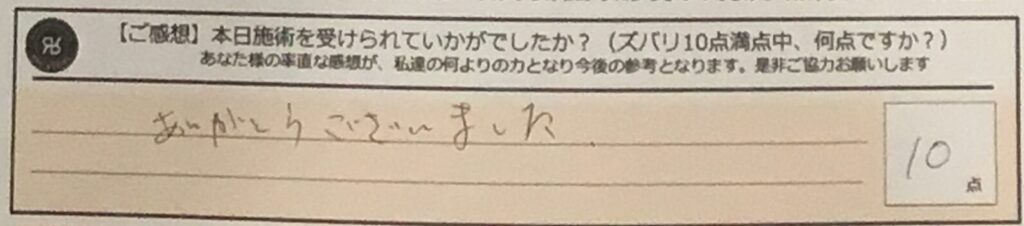 【ご感想】本日施術を受けられていかがでしたか？（ズバリ10点満点中、何点ですか？）
あなた様の率直な感想が、私達の何よりの力となり今後の参考となります。是非ご協力お願いします
ありがとうございました
10
点